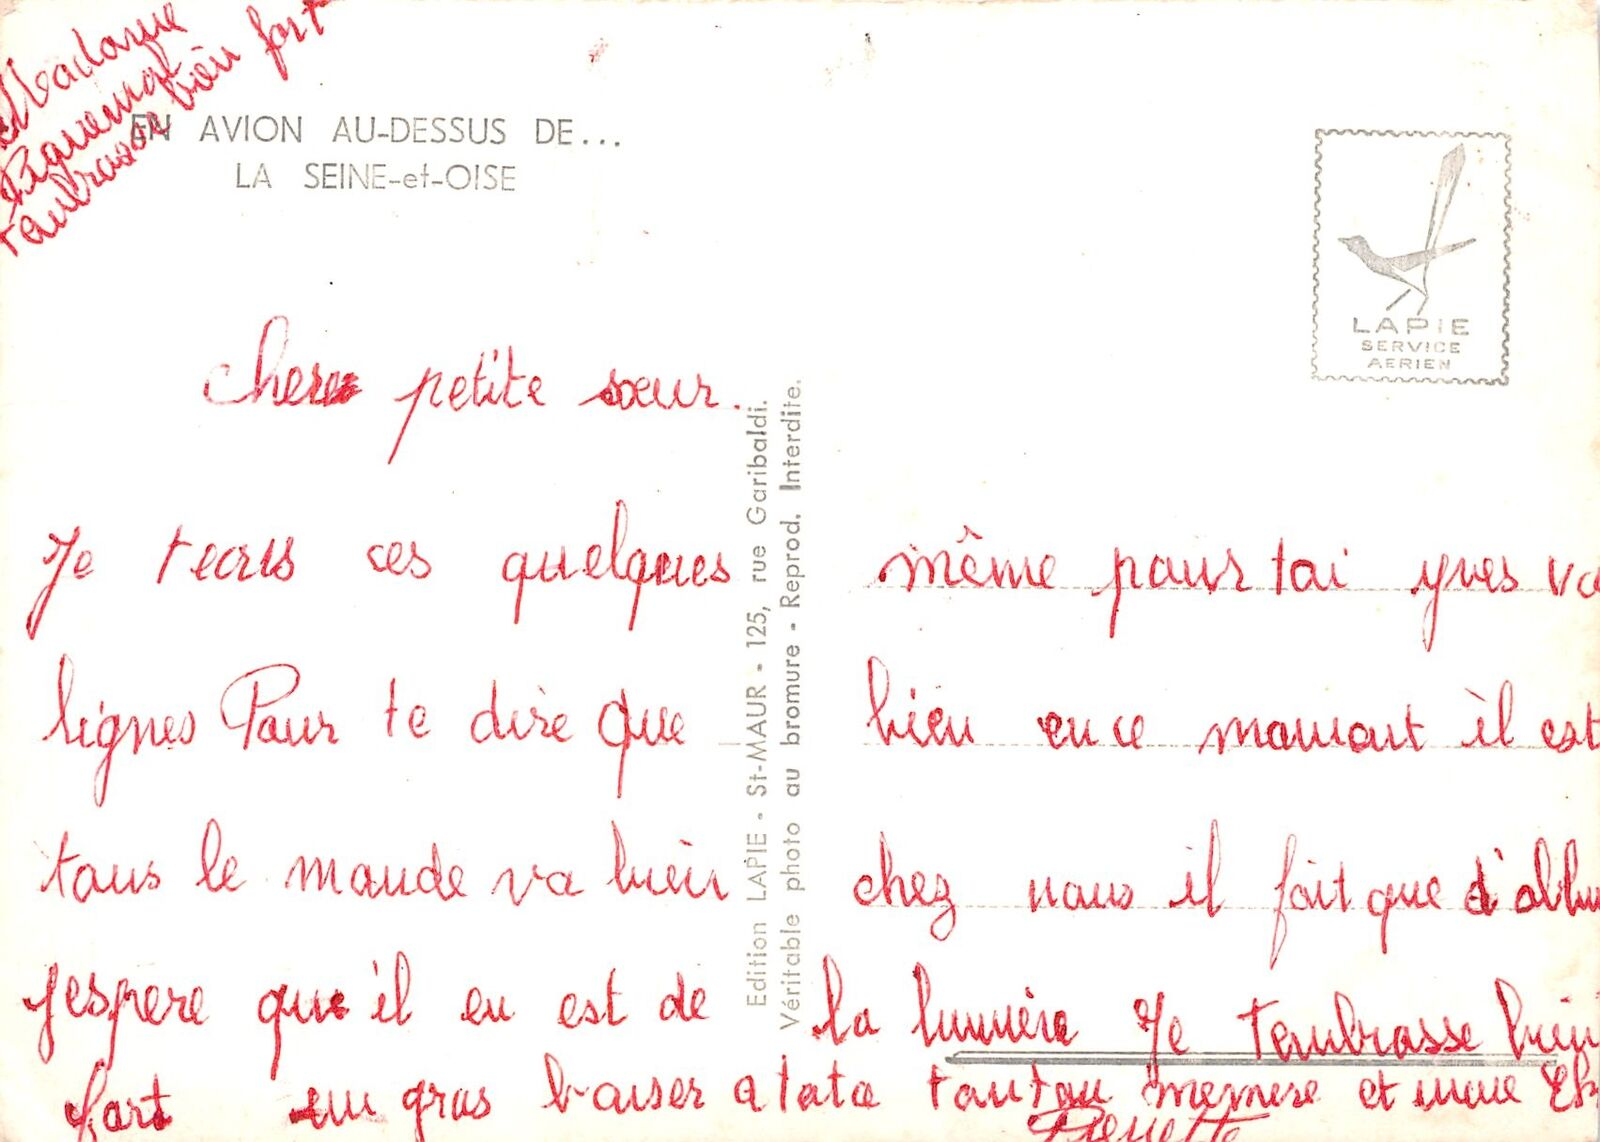 Madame
Piquemal
t'embrasse bien fort
EN AVION AU-DESSUS DE...
LA SEINE-et-OISE
LAPIE
SERVICE
AERIEN
chere petite sœur.
Je tecris ces quelques
lignes Pour te dire que
tous le monde va bien
Jespere qu'il en est de
même pour toi yves va
bien en ce momont il est
chez nous il fait que d'allu
la lumière Je t'embrasse bien
fort un gros baiser a tata tonton memere et
Pierrette
Edition LAPIE - St-MAUR - 125, rue Garibaldi.
Véritable photo au bromure - Reprod. Interdite.